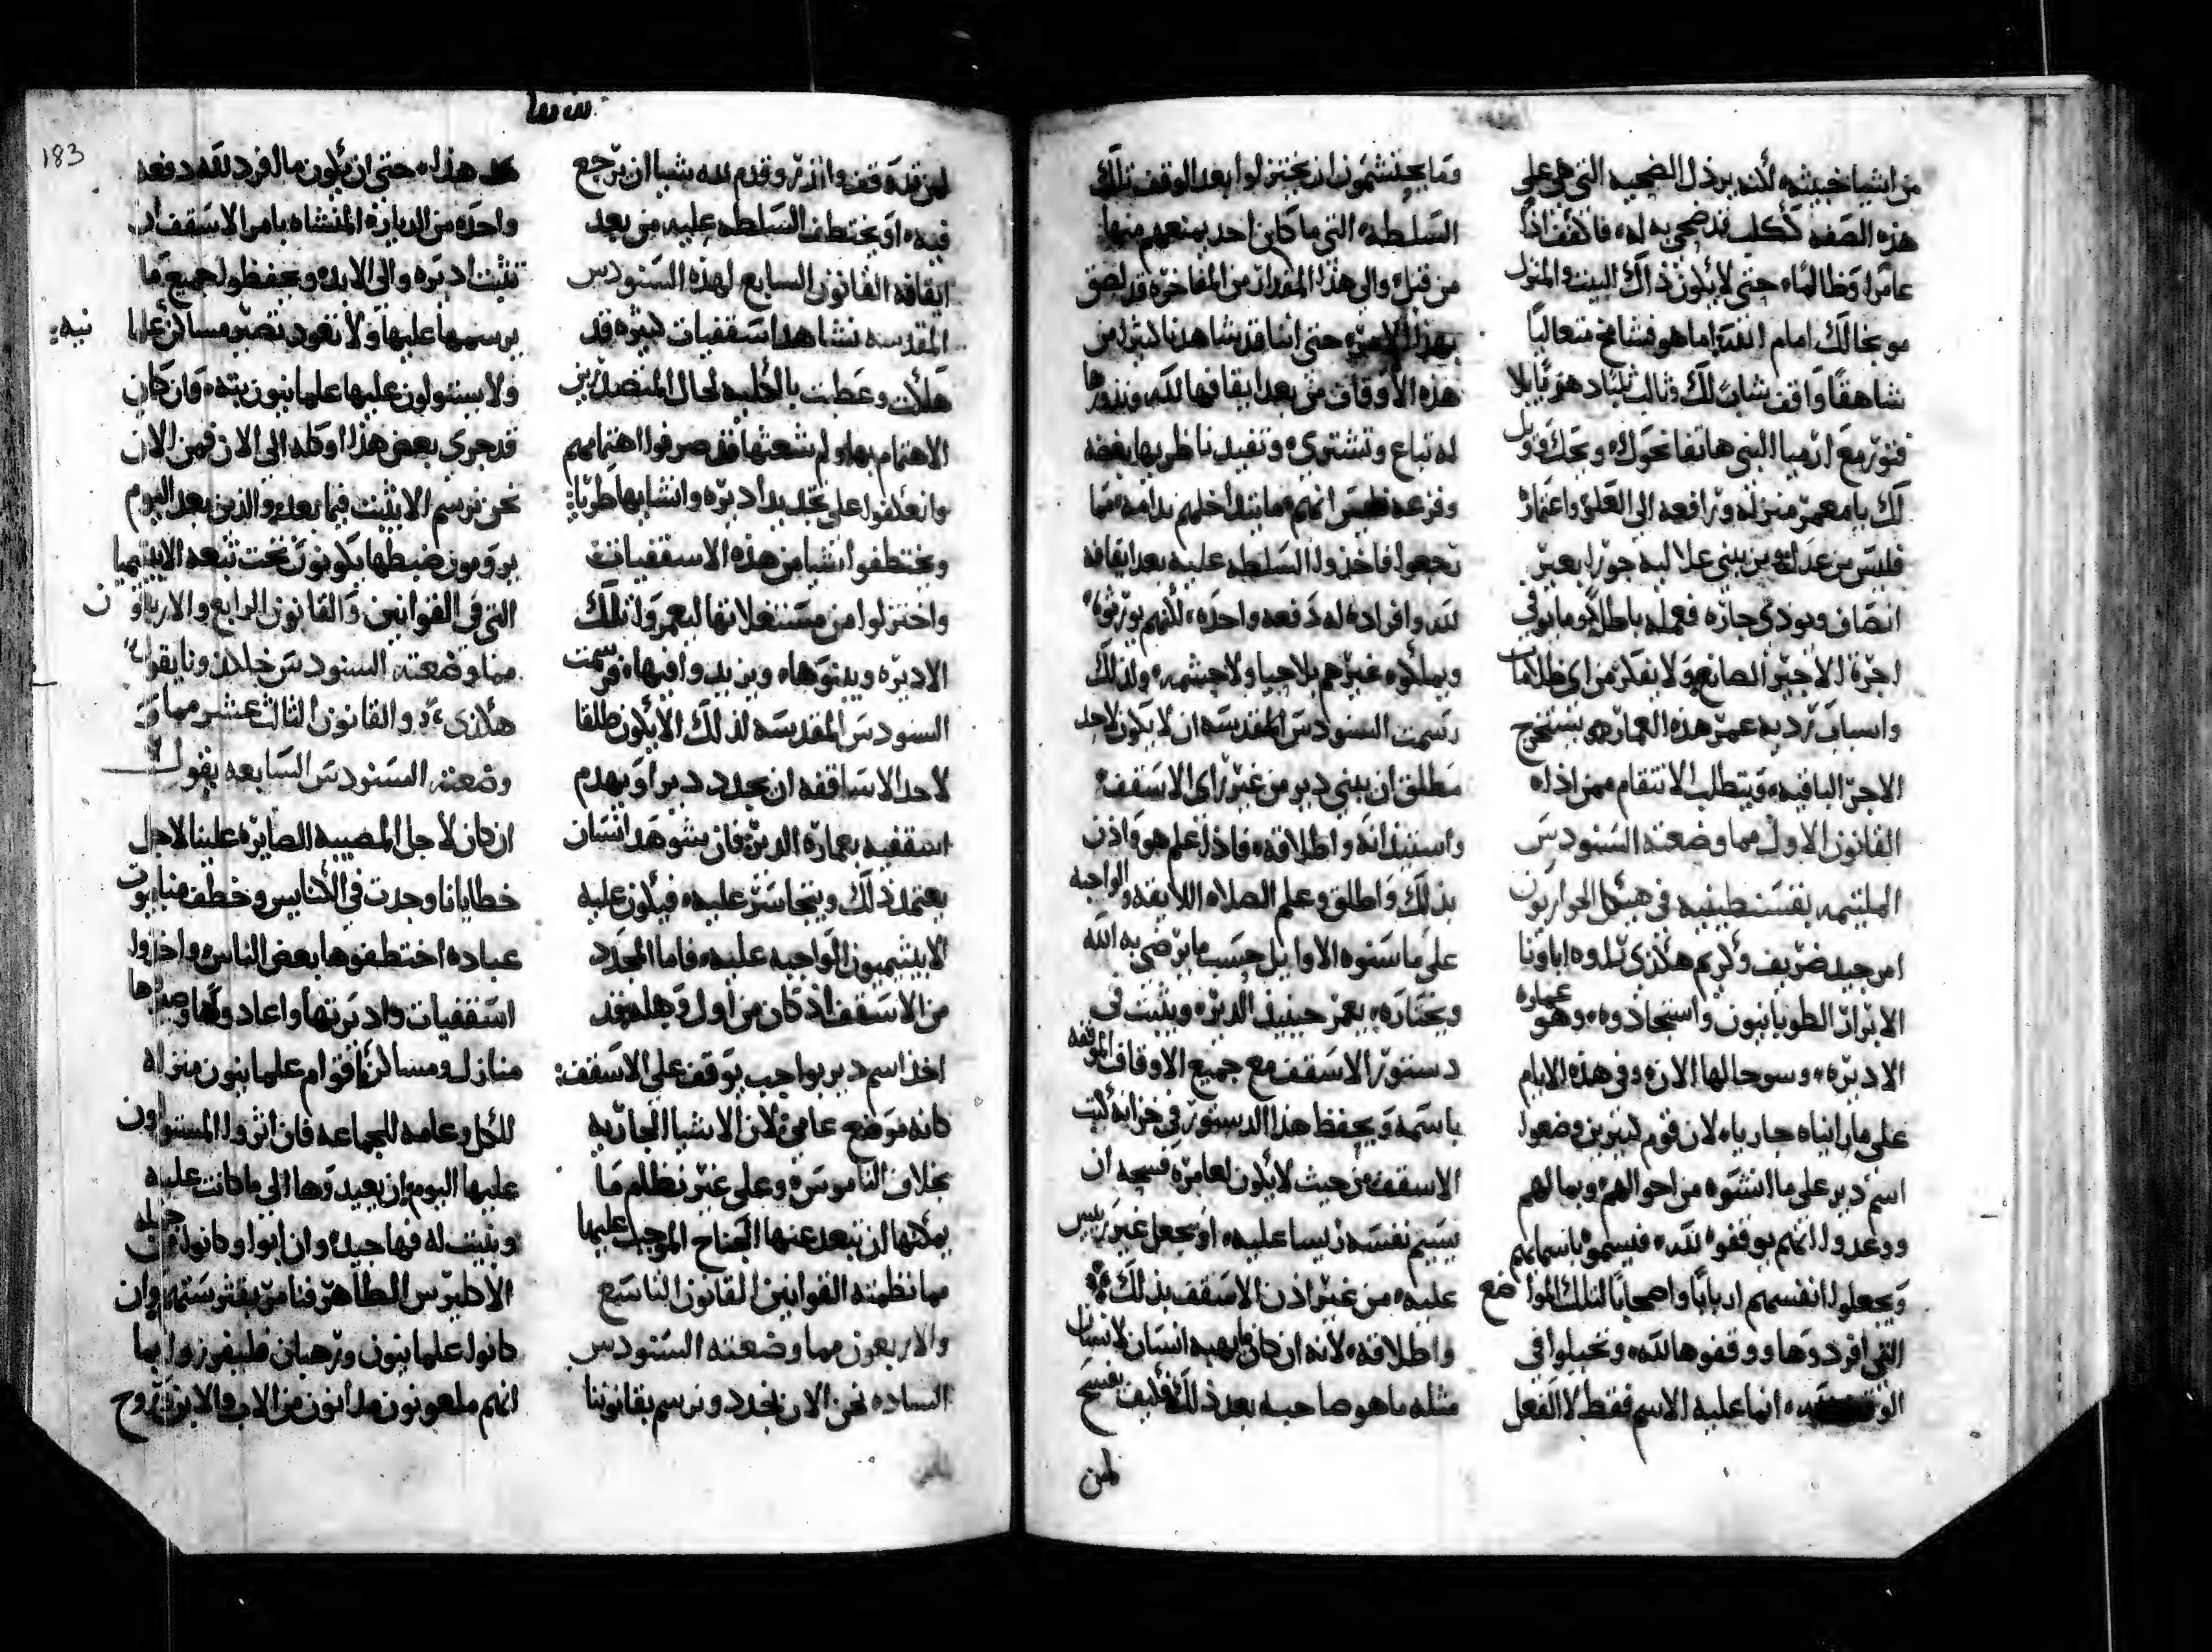 من اشيا خبيثه، لكنه يرذل الضحيه التي هي على
هذه الصفه ككلب قد ضحي به له، فاكفف اذًا
عامرا وظالمًا، حتى لا يكون ذاك البيت والمنزل
شاهقًا واقف
فتور مع ارميا النبي هاتفا نحوك، ونحك فويل
لك يا معمر منزله ورافعه الى العلو واعتماره
فليس من عدل، ومن يبني علاليه جورا بغير
انصاف ويودي جاره فعمله باطل يوما يوفي
اجرة الاجير الصانع ولا يفكر من اي ظلامات
واسباب ترديه عمر هذه العماره ويستخرج
الاجر الباقيه، ويتطلب الانتقام ممن اذله
القانون الاول مما وضعته السنودس
الملتيمه بقسنطينيه في هيكل الحواريون
امر جيد ضريف وكريم هكذى تلوه اباونا
الابرار الطوبانيون واستجادوه، وهو عماره
الاديره، وسو حالها الان، وفي هذه الايام
على ما رايناه جاريا، لان قوم كثيرين وضعوا
اسم دير على ما انشوه من احوالهم وبمالهم
ووعدوا انهم يوقفوه لله، فيسموه باسمايهم
ويجعلوا انفسهم اربابًا واصحابًا لتلك المواضع
التي افردوها ووقفوها لله، وتحيلوا في
انما عليه الاسم فقط لا الفعل
وما يحتشمون ان يختزلوا بعد الوقف تلك
السلطه، التي ما كان احد يمنعهم منها
من قبل، والى هذا المقدار من المفاخره قد لصق
بهذا الامر، حتى اننا قد شاهدنا كثيرا من
هذه الاوقاف من بعد ايقافها لله، ونذورها
له تباع وتشترى، وتفيد ناظريها بغضه
وفزعه انهم ما يتداخلهم ندامه مما
تجعوا فاخذوا السلطه عليه بعد ايقافه
لله وافراده له دفعه واحده، لكنهم يورثوه
ويملكوه غيرهم بلا حيا ولا حشمه، ولذلك
رسمت السنودس المقدسه ان لا يكون لاحد
مطلق ان يبني دير من غير راي الاسقف
واستيذانه واطلاقه، فاذا علم هو واذن
بذلك واطلق وعلم الصلاه اللايقه والواجبه
على ما سنوه الاوايل حسب ما يرضي به الله
ويختاره، يعمر حينيذ الدير، ويثبت في
دستور الاسقف مع جميع الاوقاف الموقفه
باسمه ويحفظ هذا الدستور في خزانة كتب
الاسقف من حيث لا يكون لعامره فسحه ان
يسيم نفسه رييسا عليه، او يجعل غير رييس
عليه، من غير اذن الاسقف بذلك
واطلاقه، لانه ان كان ما يهبه انسان لانسان
مثله ما هو صاحبه بعد ذلك فكيف يفسح
لمن
لمن قد وقف وانذر وقدم لله شيا ان يرجع
فيه، او يختطف السلطه عليه من بعد
ايقافه القانون السابع لهذه السنودس
المقدسه نشاهد اسقفيات كثيره قد
هلكت وعطبت بالكليه لحال المتصدرين
الاهتمام بها ولم شعثها فقد صرفوا اهتمامهم
وانعكفوا على تجديد اديره وانشايها طريًا
ويختطفوا شيا من هذه الاسقفيات
واختزلوا من مستغلاتها ليعمروا تلك
الاديره ويبنوها، ويزيدوا فيها، فرسمت
السنودس المقدسه لذلك الا يكون طلقا
لاحد الاساقفه ان يجدد دير او يهدم
اسقفيه بعماره الدير، فان يشوهد انسان
يعتمد ذلك ويتجاسر عليه، فيكون عليه
الابيثيميون الواجبه عليه، فاما المجدد
من الاسقف اذ كان من اول وهله قد
اخذ اسم دير بواجب يوقف على الاسقف:
كانه موضع عامي، لان الاشيا الجاريه
بخلاف الناموس، وعلى غير نظام ما
يمكنها ان تبعد عنها الجناح الموجب عليها
مما نظمته القوانين القانون التاسع
والاربعون مما وضعته السنودس
الساده نحن الان نجدد ونرسم بقانوننا
183
هذا، حتى ان يكون ما افرد لله دفعه
واحده من الدياره المنشاه بامر الاسقف ان
تثبت اديره والى الابد، ويحفظوا جميع ما
يرسمها عليها ولا تعود تصير مساكن علما نيه
ولا يستولون عليها علمانيون بته، وان كان
قد جرى بعض هذا او كله الى الان فمن الان
نحن نرسم الا يثبت فيما بعد، والذين بعد اليوم
يرومون ضبطها يكونون تحت تبعه الابيثيميا
التي في القوانين والقانون الرابع والاربعون
مما وضعته السنودس خلكيدونا يقول
هكذى، والقانون الثالث عشر مما
وضعته السنودس السابعه يقول
ان كان لاجل المصيبه الصايره علينا لاجل
خطايانا وجدت في الكنايس وخطف منا بيوت
عباده اختطفوها بعض الناس واخذوا
اسقفيات واديرتها واعادوها وصيرها
منازل ومساكن اقوام علمانيون منزله
للكل وعامه للجماعه فان اثروا المستولون
عليها اليوم ان يعيدوها الى ما كانت عليه
ويثبت له فها جيد، وان ابوا وكانوا من جمله
الاكليرس الطاهر فنامر بقثرستهم، وان
كانوا علمانيون ورهبان فليفرزوا بما
انهم ملعونون مدانون من الاب والابن وروح